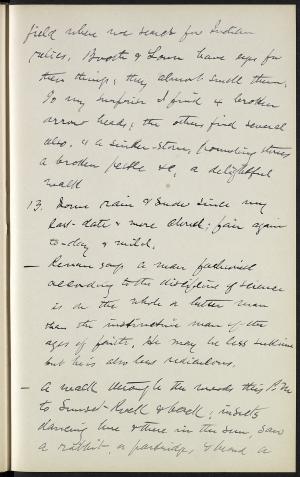 field where we search for Indian
relics. Booth & Lown have eyes for
these things; they almost smell them.
To my surprise I find 4 broken
arrow heads; the others find several
also, & a sinker-stone, pounding stones
a broken pestle &c, a delightful
walk
13. Some rain & snow since my
last date & more cloud; fair again
to-day & mild.
— Renan says a man fashioned
according to the discipline of science
is on the whole a better man
than the instructive man of the
ages of faith. He may be less sublime
but he is also less ridiculous.
— A walk through the woods this P.M.
to Sunset-Rock & back; insects
dancing here & there in the sun, saw
a rabbit, a partridge, & heard a